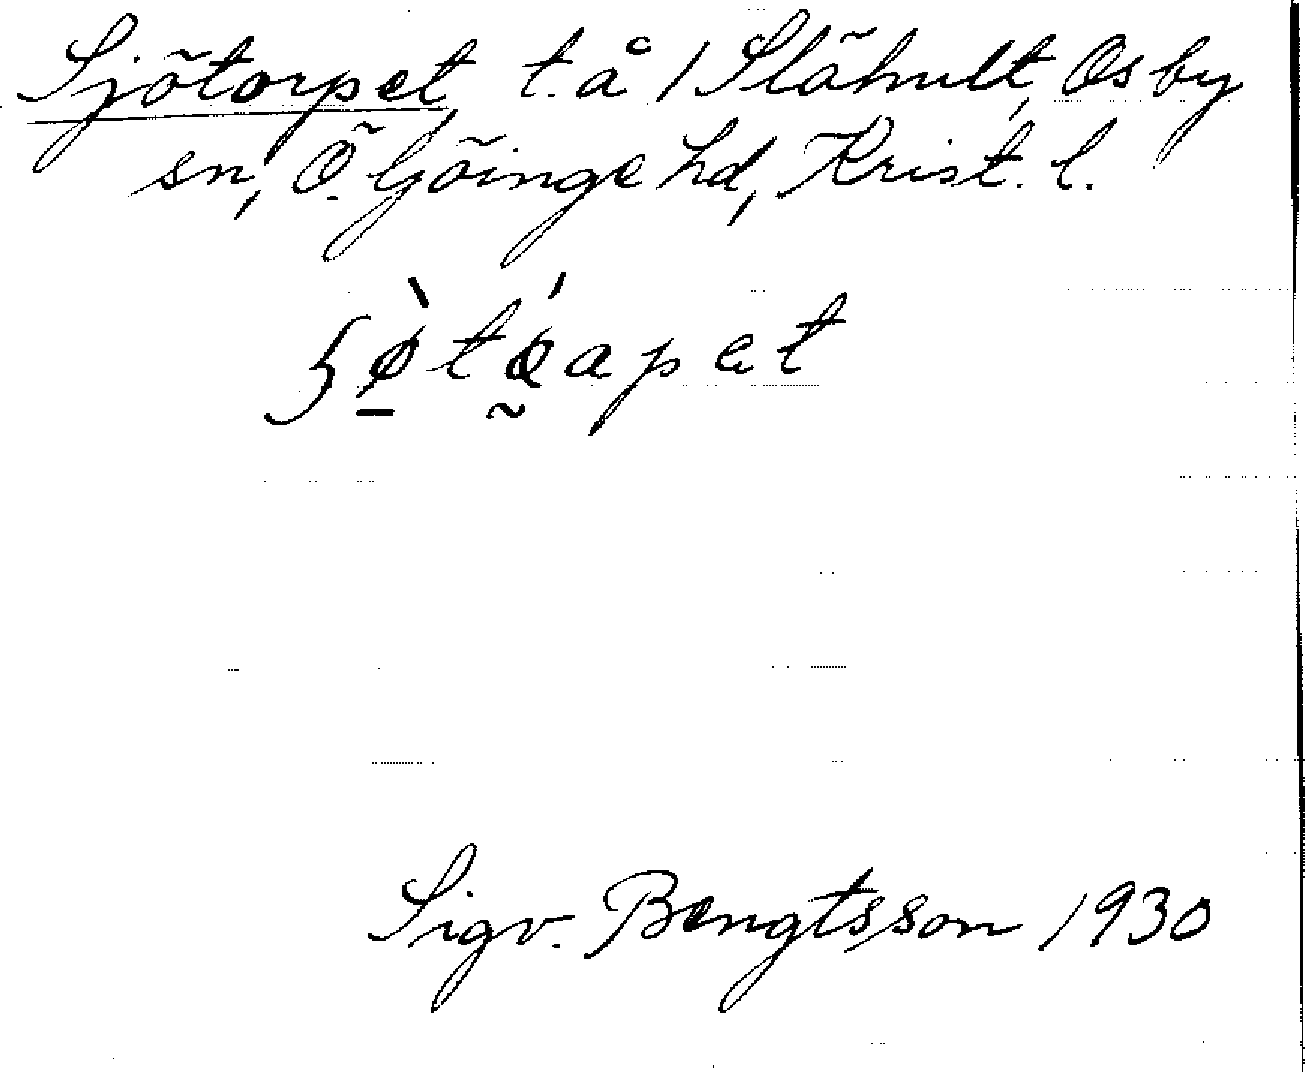 Sjötorpet t. å 1 Slähult, Osby
sn, Ö. Göinge hd, Krist. l.
Sigv. Bengtsson 1930